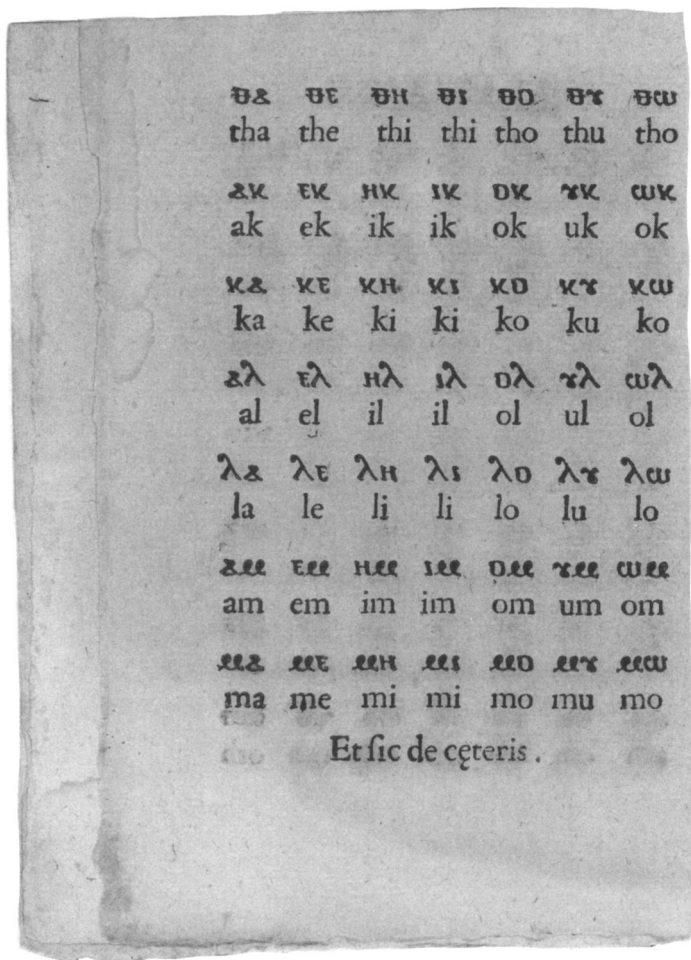 ⲑⲁ ⲑⲉ ⲑⲏ ⲑⲓ ⲑⲟ ⲑⲩ ⲑⲱ
tha the thi thi tho thu tho
ⲁⲕ ⲉⲕ ⲏⲕ ⲓⲕ ⲟⲕ ⲩⲕ ⲱⲕ
ak ek ik ik ok uk ok
ⲕⲁ ⲕⲉ ⲕⲏ ⲕⲓ ⲕⲟ ⲕⲩ ⲕⲱ
ka ke ki ki ko ku ko
ⲁⲗ ⲉⲗ ⲏⲗ ⲓⲗ ⲟⲗ ⲩⲗ ⲱⲗ
al el il il ol ul ol
ⲗⲁ ⲗⲉ ⲗⲏ ⲗⲓ ⲗⲟ ⲗⲩ ⲗⲱ
la le li li lo lu lo
ⲁⲙ ⲉⲙ ⲏⲙ ⲓⲙ ⲟⲙ ⲩⲙ ⲱⲙ
am em im im om um om
ⲙⲁ ⲙⲉ ⲙⲏ ⲙⲓ ⲙⲟ ⲙⲩ ⲙⲱ
ma me mi mi mo mu mo
Et ſic de cęteris .